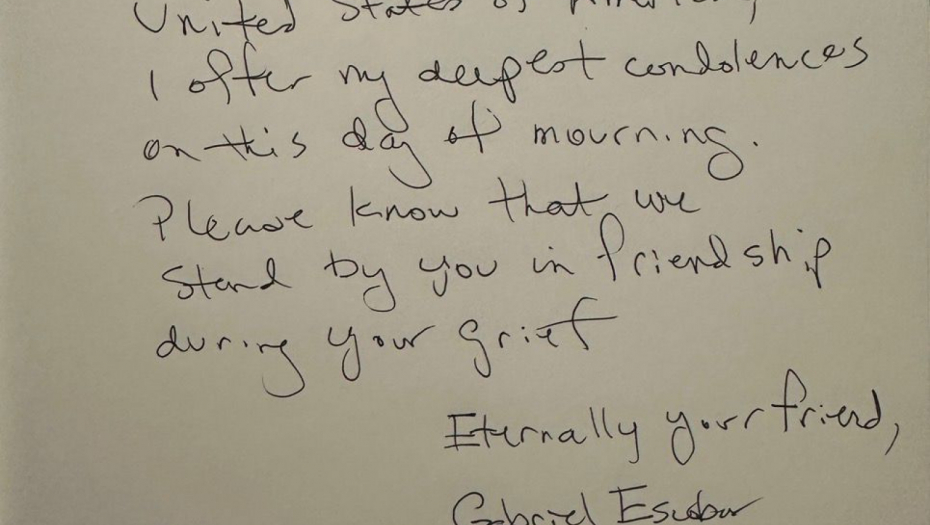 United States of America,
I offer my deepest condolences
on this day of mourning.
Please know that we
stand by you in friendship
during your grief
Eternally your friend,
Gabriel Escobar